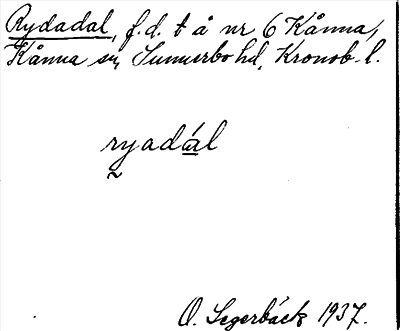 Rydadal, f.d. t å nr 6 Kånna,
Kånna sn, Sunnerbo hd, Kronob. l.
ryadál
O. Segerbäck 1937.